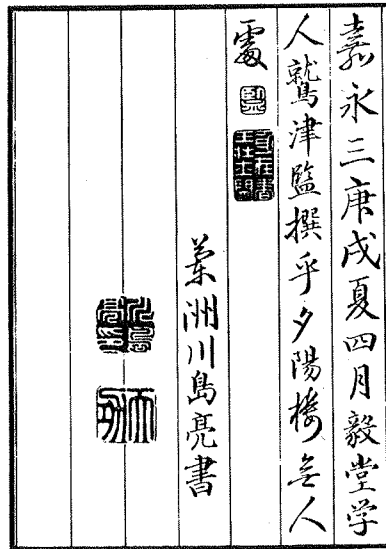 嘉永三庚戌夏四月毅堂学
人鷲津監撰乎夕陽楼無人
處
蘭洲川島亮書